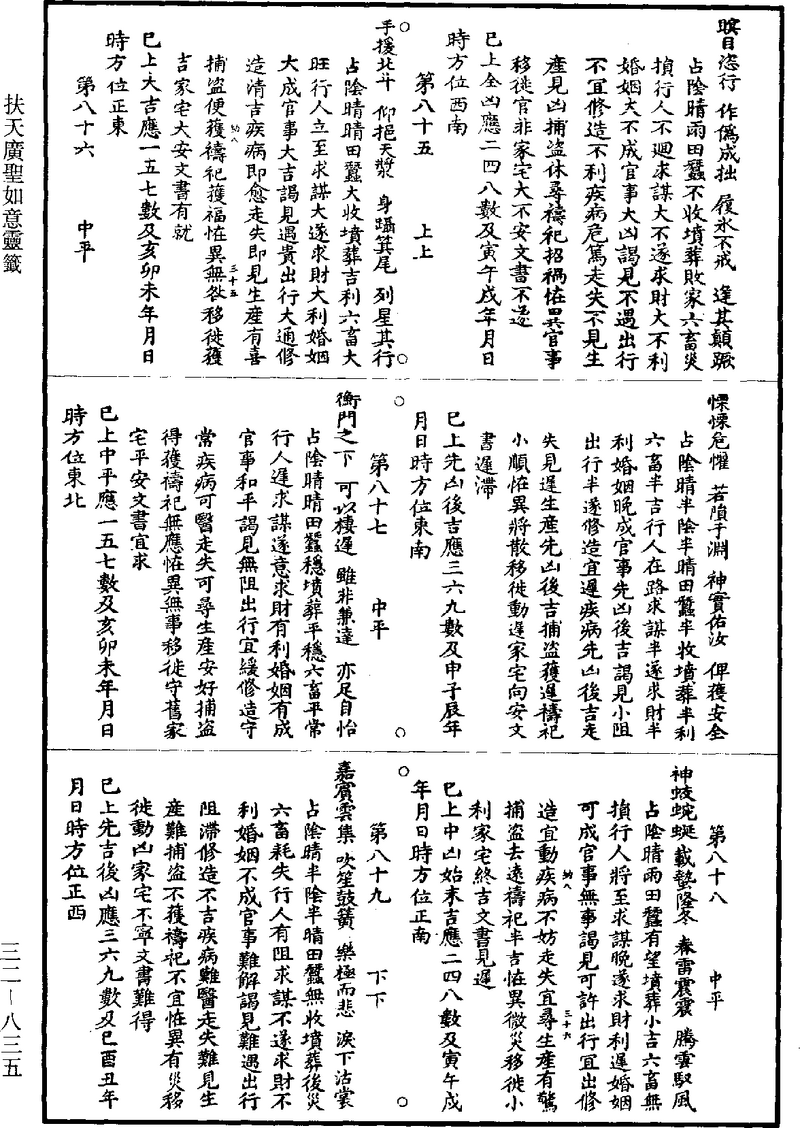 瞑目恣行　作僞成拙　履氷不戒　逢其顛蹶
占陰晴雨田蠶不收墳葬敗家六畜災
損行人不廻求謀大不遂求財大不利
婚姻大不成官事大凶謁見不遇出行
不宜修造不利疾病危篤走失不見生
產見凶捕盜休尋禱祀招禍恠異官事
移徙官非家宅大不安文書不遂
已上全凶應二四八數及寅午戌年月日
時方位西南
第八十五　　上上
手援北斗　仰挹天漿　身躡箕尾　列星其行
占陰晴晴田蠶大收墳葬吉利六畜大
旺行人立至求謀大遂求財大利婚姻
大成官事大吉謁見遇貴出行大通修
造清吉疾病即愈走失即見生產有喜
捕盜便獲禱祀獲福恠異無咎移徙獲
吉家宅大安文書有就
已上大吉應一五七數及亥卯未年月日
時方位正東
第八十六　　中平
慄慄危懼　若隕于淵　神實佑汝　俾獲安全
占陰晴半陰半晴田蠶半收墳葬半利
六畜半吉行人在路求謀半遂求財半
利婚姻晚成官事先凶後吉謁見小阻
出行半遂修造宜遲疾病先凶後吉走
失見遲生產先凶後吉捕盜獲遲禱祀
小順恠異將散移徙動遲家宅向安文
書遲滯
已上先凶後吉應三六九數及申子辰年
月日時方位東南
第八十七　　中平
衡門之下　可以棲遲　雖非兼達　亦足自怡
占陰晴晴田蠶穩墳葬平穩六畜平常
行人遲求謀遂意求財有利婚姻有成
官事和平謁見無阻出行宜緩修造守
常疾病可醫走失可尋生產安好捕盜
得獲禱祀無應恠異無事移徙守舊家
宅平安文書宜求
已上中平應一五七數及亥卯未年月日
時方位東北
第八十八　　中平
神蛟蜿蜒　載蟄隆冬　春雷震震　騰雲馭風
占陰晴雨田蠶有望墳葬小吉六畜無
損行人將至求謀晚遂求財利遲婚姻
可成官事無事謁見可許出行宜出修
造宜動疾病不妨走失宜尋生產有驚
捕盜去遠禱祀半吉恠異微災移徙小
利家宅終吉文書見遲
已上中凶始末吉應二四八數及寅午戌
年月日時方位正南
第八十九　　下下
嘉賓雲集　吹笙鼓簧　樂極而悲　淚下沾裳
占陰晴半陰半晴田蠶無收墳葬後災
六畜耗失行人有阻求謀不遂求財不
利婚姻不成官事難解謁見難遇出行
阻滯修造不吉疾病難醫走失難見生
產難捕盜不獲禱祀不宜恠異有災移
徙動凶家宅不寧文書難得
已上先吉後凶應三六九數及巳酉丑年
月日時方位正西
扶天廣聖如意靈籤
三二－八三五
三十五
三十六